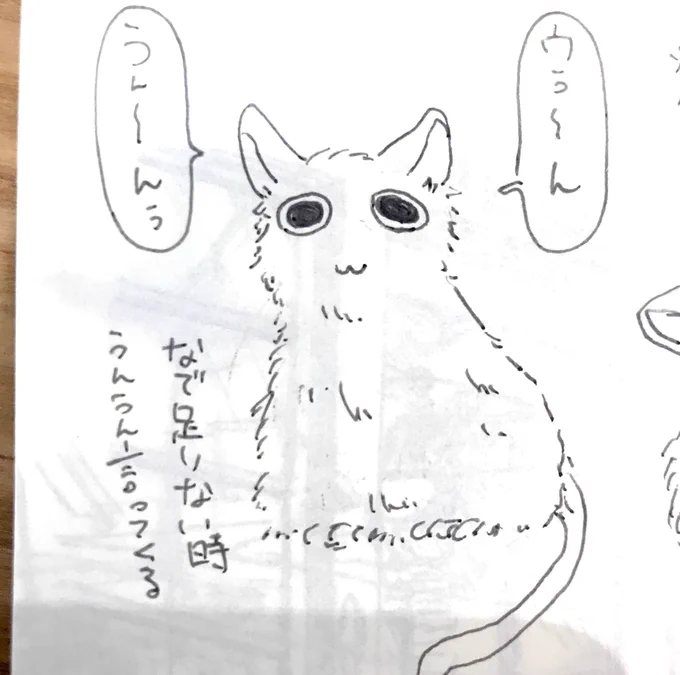 ウぅ〜ん
うん〜んぅ
なで足りない時
うんうん言ってくる